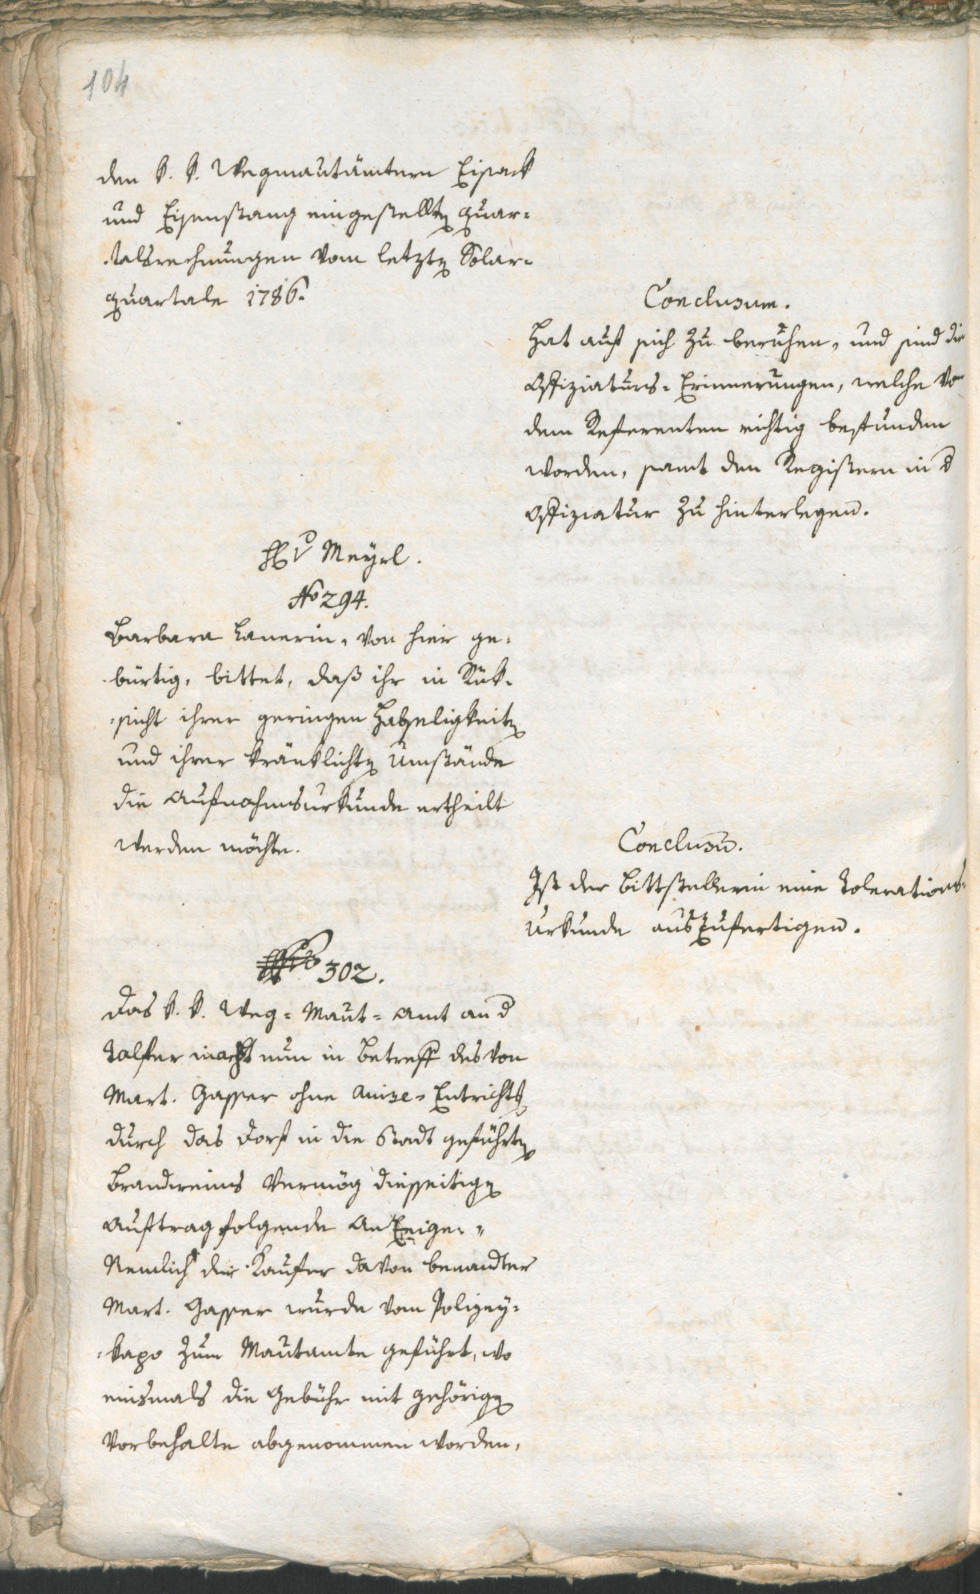 104
den k. k. Wegmautämtern Eisack
und Eisenstang eingestellten Quar-
talsrechnungen vom letzten Solar-
quartale 1786.
Conclusum.
Hat auf sich zu beruhen, und sind die
Offiziaturs-Erinnerungen, welche von
dem Referenten richtig befunden
worden, samt den Registern in d
Offiziatur zu hinterlegen.
H v Meÿrl.
No 294.
Barbara Lanerin, von hier ge-
bürtig, bittet, daß ihr in Rük-
sicht ihrer geringen Habseligkeiten
und ihrer kränklichten Umstände
die Aufnahmsurkunde ertheilt
werden möchte.
Conclusum.
Ist der Bittstellerin eine Tolerations-
Urkunde auszufertigen.
No 302.
Das k. k. Weg-Maut-Amt an d
Talfer macht nun in Betreff des von
Mart. Gasser ohne Avise-Entrichtung
durch das Dorf in die Stadt geführten
Brandweins vermög diesseitigen
Auftrag folgende Anzeige.
Nemlich der Kaufer davon benandter
Mart. Gasser wurde vom Polizey-
kapo zum Mautamte geführt, wo
einsmals die Gebühr mit gehörigen
Vorbehalte abgenommen worden,